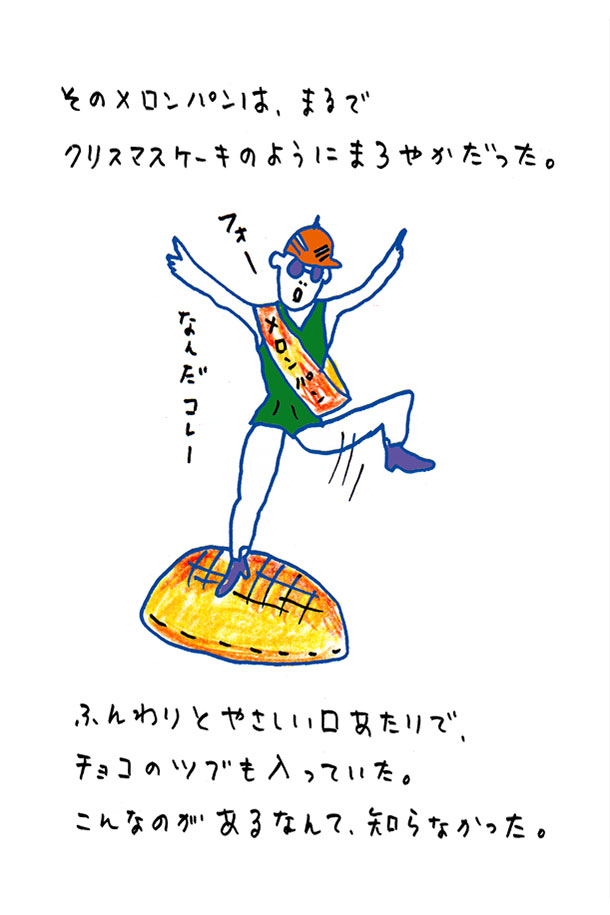 そのメロンパンは、まるで
クリスマスケーキのようにまろやかだった。
フォー
なんだコレー
メロンパン
ふんわりとやさしい口あたりで、
チョコのツブも入っていた。
こんなのがあるなんて、知らなかった。